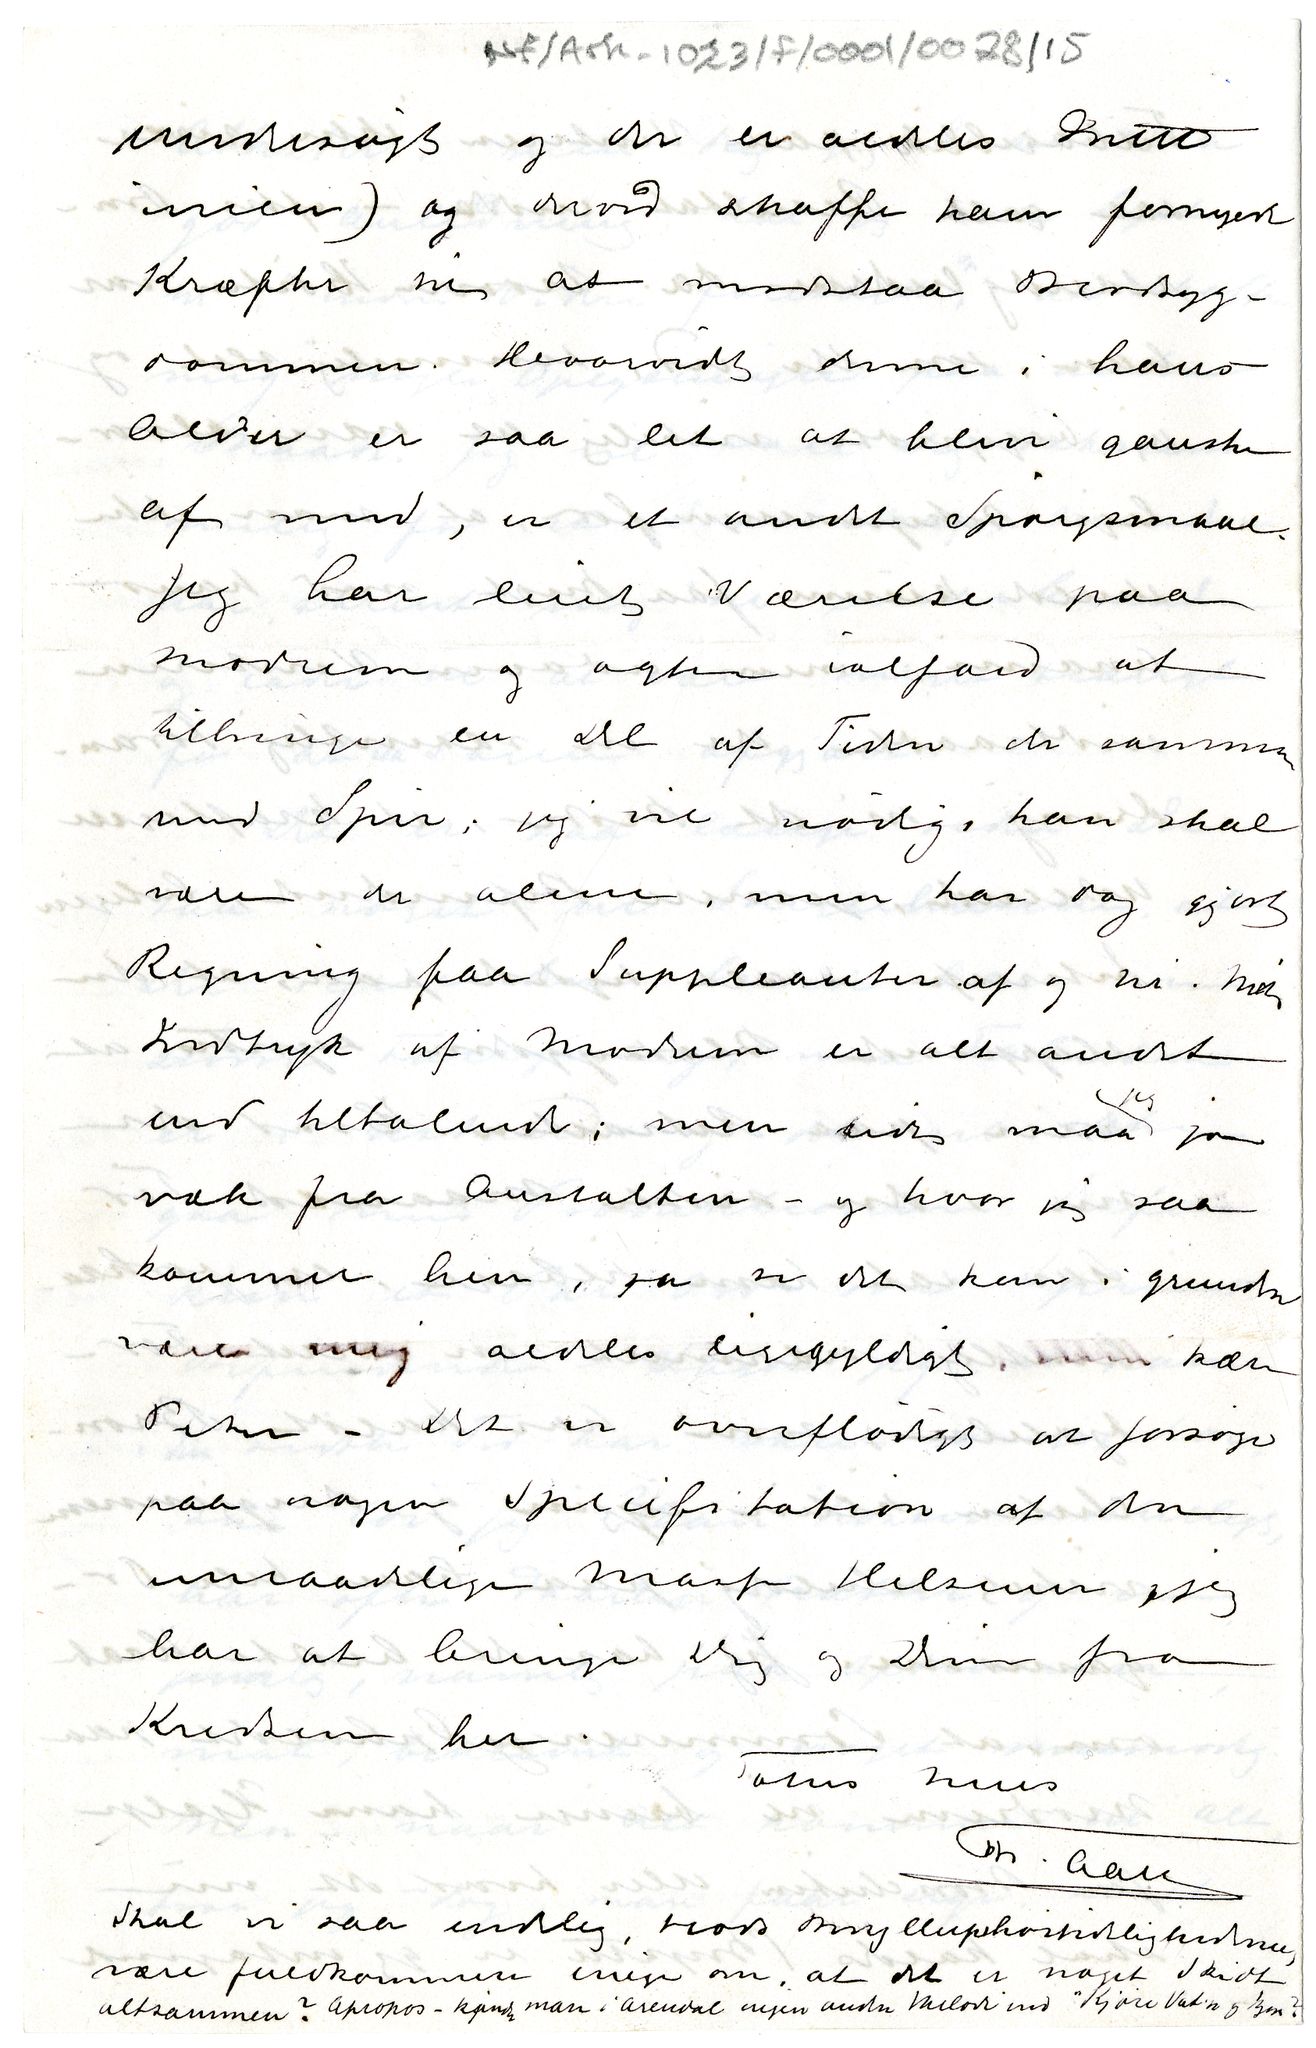 NF/Ark-1023/F/0001/0028/15
undersøgt og der er aldeles Intet
iveien) og derved skaffe ham fornyede
Kræfter til at modstaa Blodsyg-
dommen. Hvorvidt denne i hans
Alder er saa let at blive ganske
af med, er et andet Spørgsmaal.
Jeg har leiet Værelse paa
Modum og agter ialfald at
tilbringe en Del af Tiden der sammen
med Spir; jeg vil nødig, han skal
være der alene, men har dog gjort
Regning paa Suppleanter af og til. Mit
Indtryk af Modum er alt andet
end tiltalende; men ud maa jeg jo
væk fra Anstalten – og hvor jeg saa
kommer hen, ja se det kan i grunden
være mig aldeles ligegyldigt, min kære
Peter – Det er overflødigt at forsøge
paa nogen Specifikation af den
umaadelige Masse Hilsener, jeg
har at bringe Dig og Dine fra
Kredsen her.
Totus tuus
Th. Aall
Skal vi saa endelig, trods Bryllupshøitidelighederne,
være fuldkommen enige om, at det er noget Skidt
altsammen? Apropos – kjender man i Arendal ingen anden Melodi end "Kjøre Vatn og